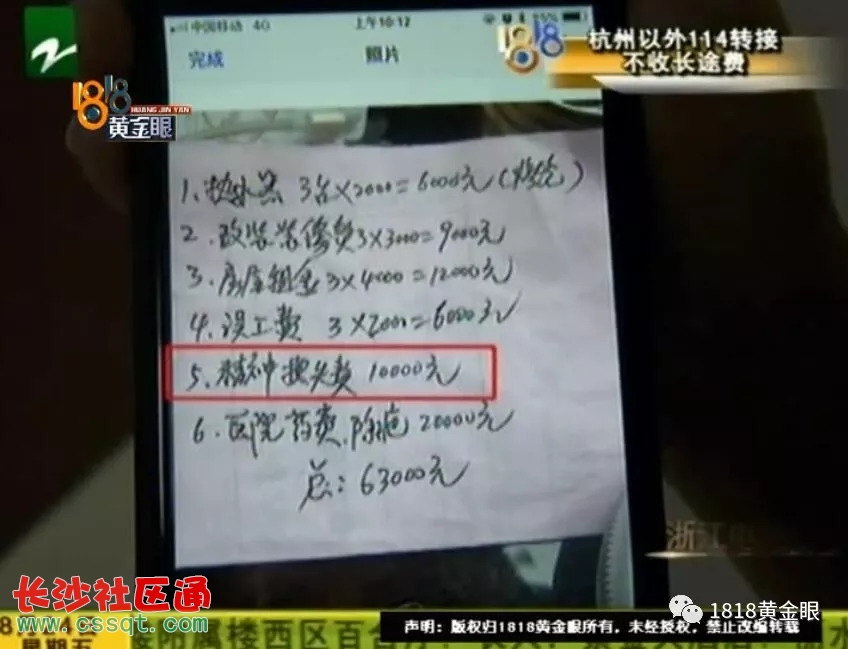 中国移动 4G 上午10:12 85%
完成 照片
1818
HUANG JIN YAN
黄金眼
1818
杭州以外114转接
不收长途费
1、热水器 3台×2000=6000元(烧坏)
2、改装装修费3×3000=9000元
3、房屋租金3×4000=12000元
4、误工费 3×2000=6000元
5、精神损失费 10000元
6、医院药费、除疤 20000元
总:63000元
浙江
长沙社区通
www.cssqt.com
1818黄金眼
星期五
声明:版权归1818黄金眼所有,未经授权,禁止改编转载